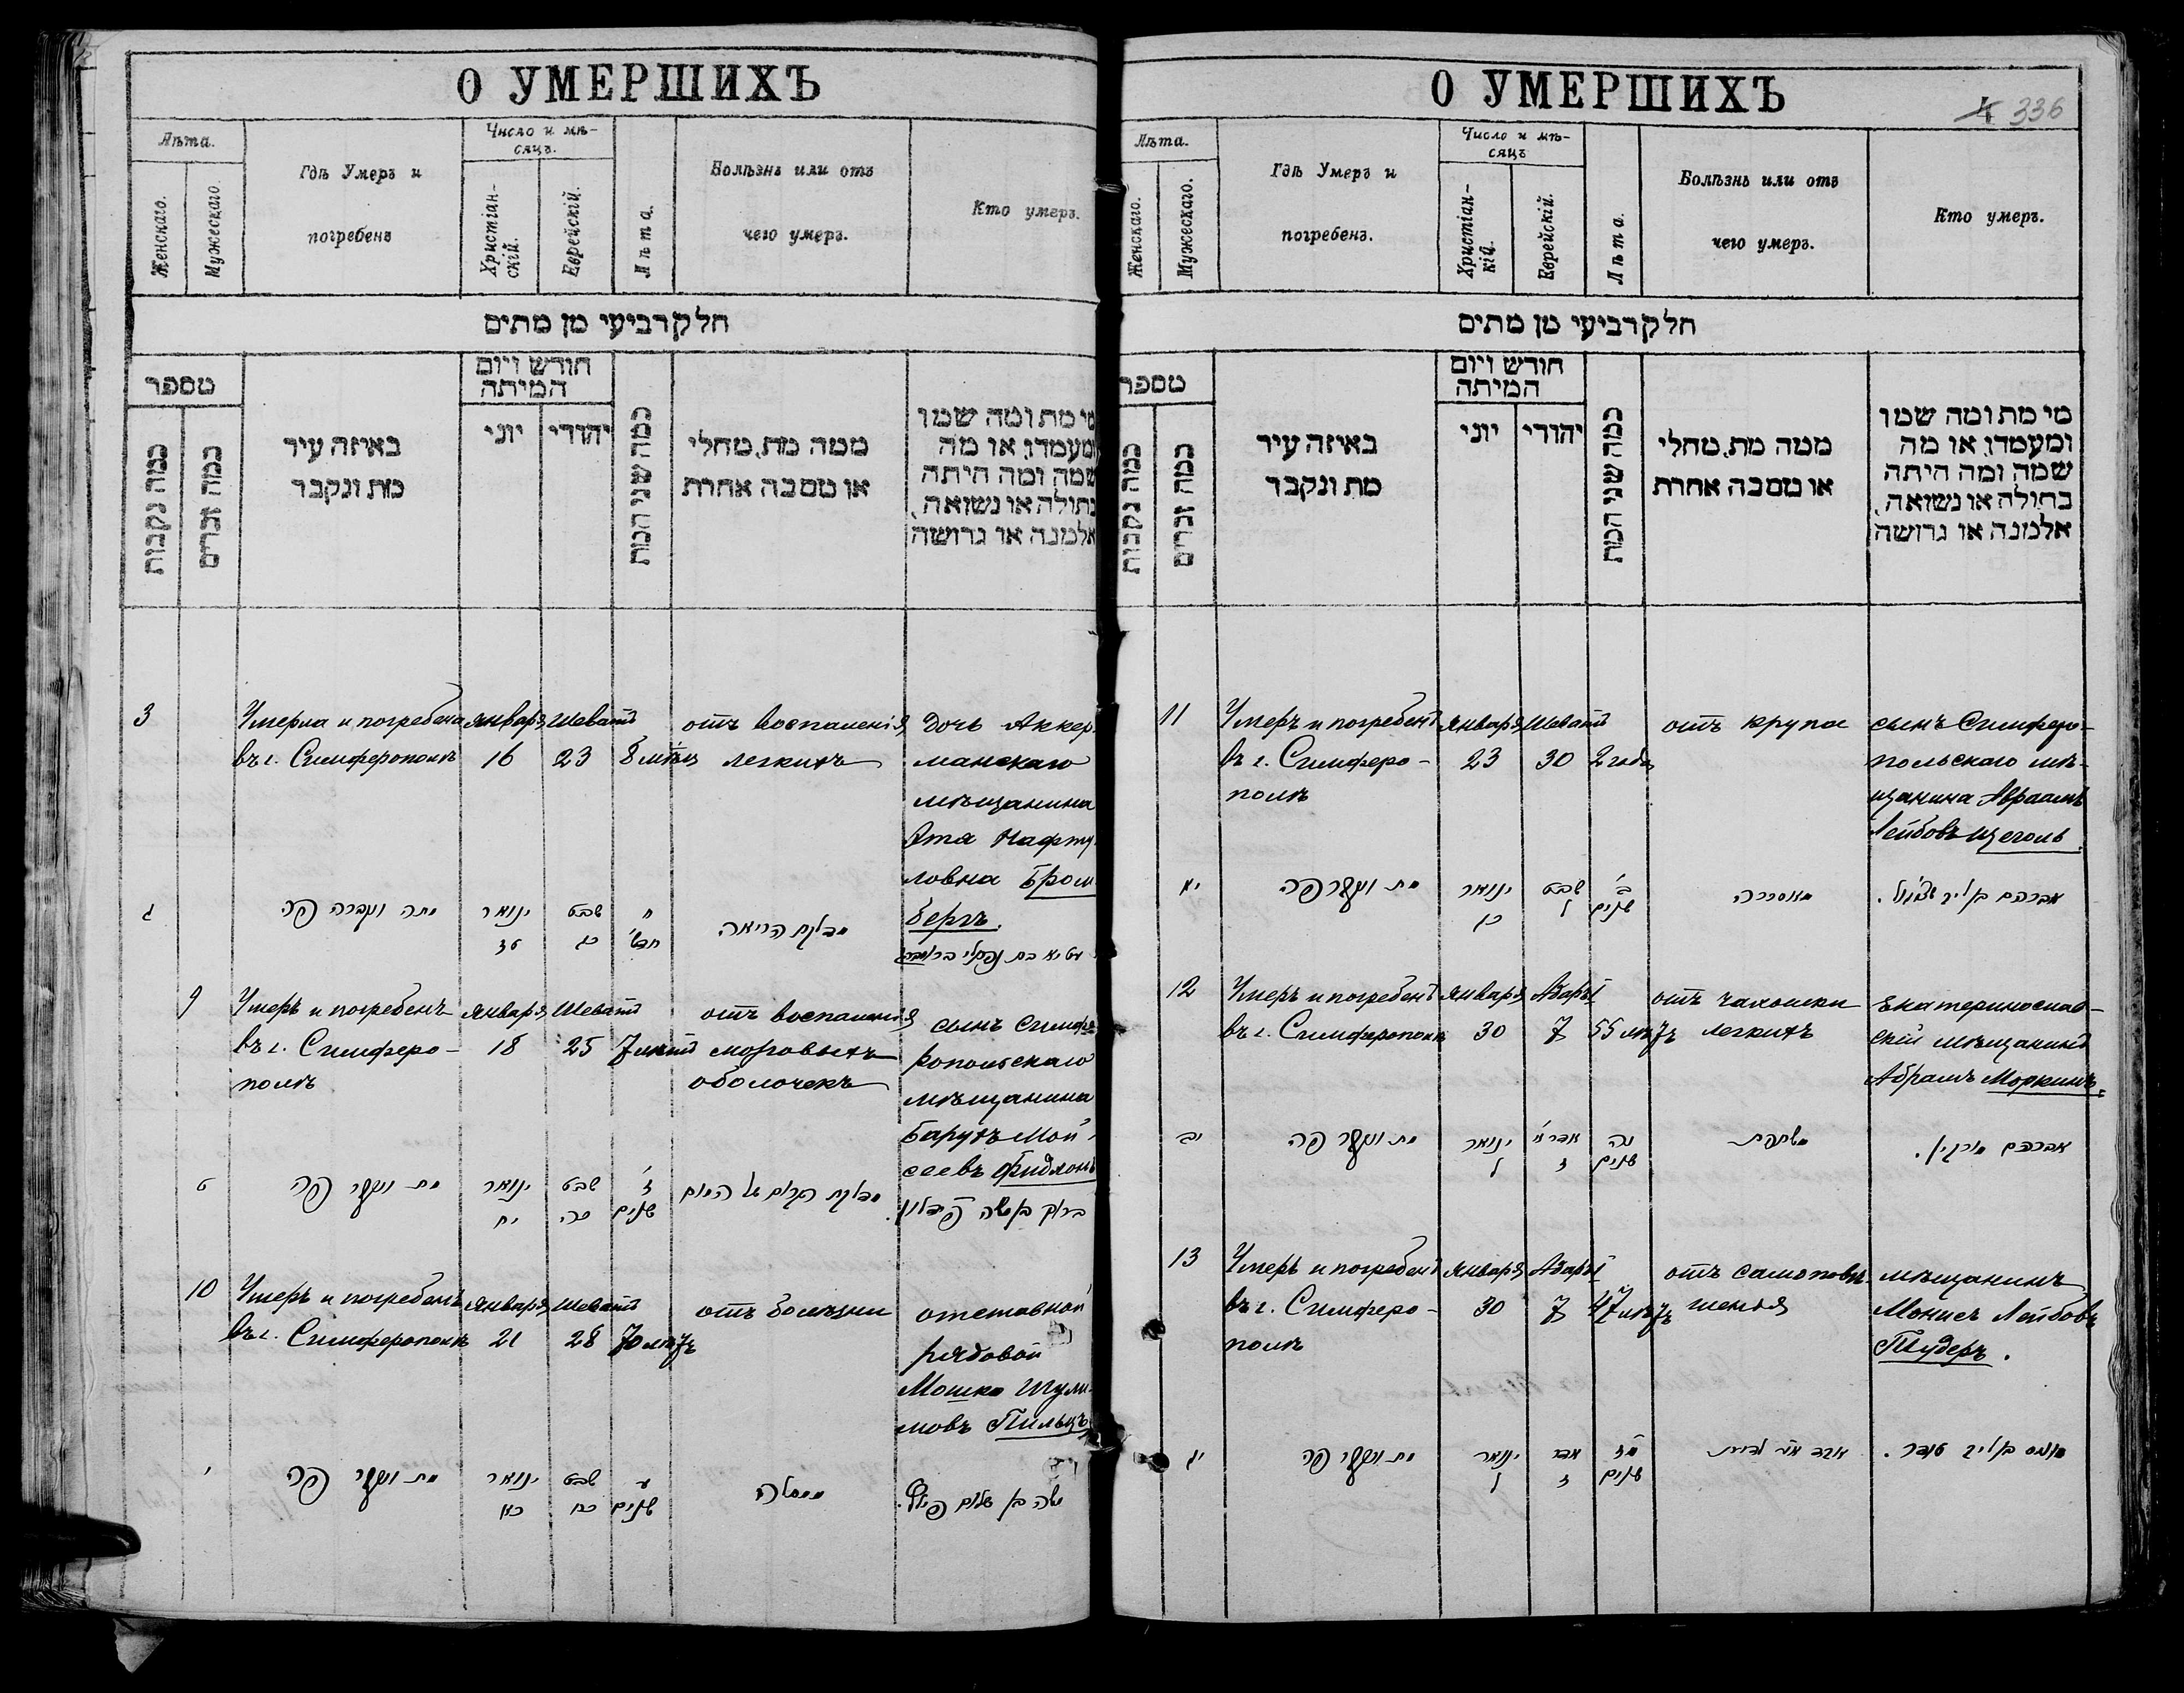 О УМЕРШИХЪ
Лѣта.
Женскаго.
Мужескаго.
Гдѣ Умеръ и
погребенъ
Число и мѣ-
сяцъ.
Христіан-
скій.
Еврейскій.
Лѣта.
Болѣзнь или отъ
чего умеръ.
Кто умеръ.
חלק רביעי מן מתים
מספר
כמה נקבות
כמה זכרים
באיזה עיר
מת ונקבר
חודש ויום
המיתה
יוני
יהודי
כמה שני המת
ממה מת, מחלי
או מסבה אחרת
מי מת ומה שמו
ומעמדו, או מה
שמה ומה היתה
בתולה או נשואה,
אלמנה או גרושה
3
Умерла и погребена
въ г. Симферополѣ
Января
16
Шеватъ
23
8 мѣсц
отъ воспаленія
легкихъ
дочь Аккер
манскаго
мѣщанина
Этя Нафту
ловна Бром
бергъ.
ג
מתה ונקברה פה
ינואר
טז
שבט
כג
ח
חדש'
מדלקת הריאה
בת נפתלי
9
Умеръ и погребенъ
въ г. Симферо-
полѣ
Января
18
Шеватъ
25
7 лѣтъ
отъ воспаленія
мозговыхъ
оболочекъ
сынъ Симфе
ропольскаго
мѣщанина
Барухъ Мой-
сеевъ Фидлонъ
ט
מת ונקבר פה
ינואר
יח
שבט
כה
ז'
שנים
מדלקת הקרום של המוח
ברוך בן משה פידלון.
10
Умеръ и погребенъ
въ г. Симферополѣ
Января
21
Шеватъ
28
70 лѣтъ
отъ болѣзни
отставной
рядовой
Мошко Шули
мовъ Пильцъ
י
מת ונקבר פה
ינואר
כא
שבט
כח
ע
שנים
ממחלה
משה בן שלום פילץ.
О УМЕРШИХЪ
4 336
Лѣта.
Женскаго.
Мужескаго.
Гдѣ Умеръ и
погребенъ.
Число и мѣ-
сяцъ
Христіан-
кій.
Еврейскій.
Лѣта.
Болѣзнь или отъ
чего умеръ.
Кто умеръ.
חלק רביעי מן מתים
מספר
כמה נקבות
כמה זכרים
באיזה עיר
מת ונקבר
חודש ויום
המיתה
יוני
יהודי
כמה שני המת
ממה מת, מחלי
או מסבה אחרת
מי מת ומה שמו
ומעמדו, או מה
שמה ומה היתה
בתולה או נשואה,
אלמנה או גרושה
11
Умеръ и погребенъ
въ г. Симферо-
полѣ
Января
23
Шеватъ
30
2 года
отъ крупа
сынъ Симферо-
польскаго мѣ-
щанина Авраамъ
Лейбовъ Щеголь.
יא
מת ונקבר פה
ינואר
כג
שבט
ל
ב'
שנים
מאסכרה
אברהם בן ליב
12
Умеръ и погребенъ
въ г. Симферополѣ
Января
30
Адаръ I
7
55 лѣтъ
отъ чахотки
легкихъ
Екатеринослав-
скій мѣщанинъ
Абрамъ Моркинъ.
יב
מת ונקבר פה
ינואר
ל
אדר א'
ז
נה
שנים
משחפת
אברהם מורקין.
13
Умеръ и погребенъ
въ г. Симферо-
полѣ
Января
30
Адаръ I
7
47 лѣтъ
отъ самоповѣ-
шенія
мѣщанинъ
Монисъ Лейбовъ
Тендеръ.
יג
מת ונקבר פה
ינואר
ל
אדר
ז
מז
שנים
אבד את
מוניס בן ליב